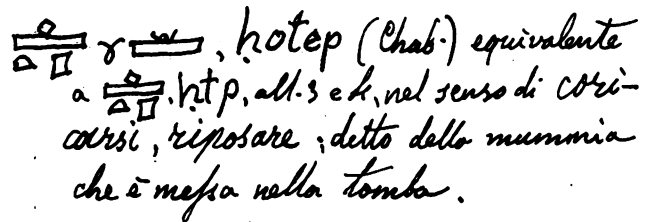 𓊵𓏏𓊪 γ , ḥotep (Chab.) equivalente
a 𓊵𓏏𓊪, ḥtp, all. 3 e k, nel senso di cori-
carsi, riposare; detto della mummia
che è messa nella tomba.